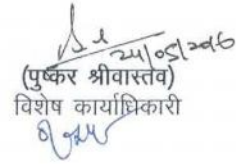 24/05/2016
(पुष्कर श्रीवास्तव)
विशेष कार्याधिकारी